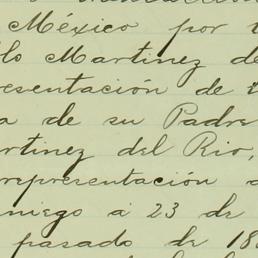 México por
lo Martinez de
resentación de
a de su Padre
artinez del Rio,
representación
á 23 de
pasado de 18